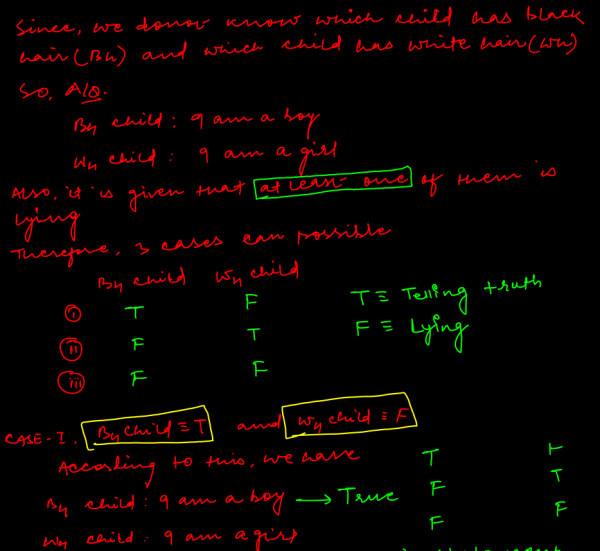 Since, we donot know which child has black
hair (BH) and which child has white hair (WH)
SO, A/Q.
BH child : I am a boy
WH child : I am a girl
Also, it is given that at least one of them is
lying
Therefore, 3 cases can possible
BH child WH child
(i) T F T ≡ Telling truth
(ii) F T F ≡ Lying
(iii) F F
CASE-I. BH child ≡ T and WH child ≡ F
According to this, we have T F
BH child : I am a boy → True F T
WH child : I am a girl F F